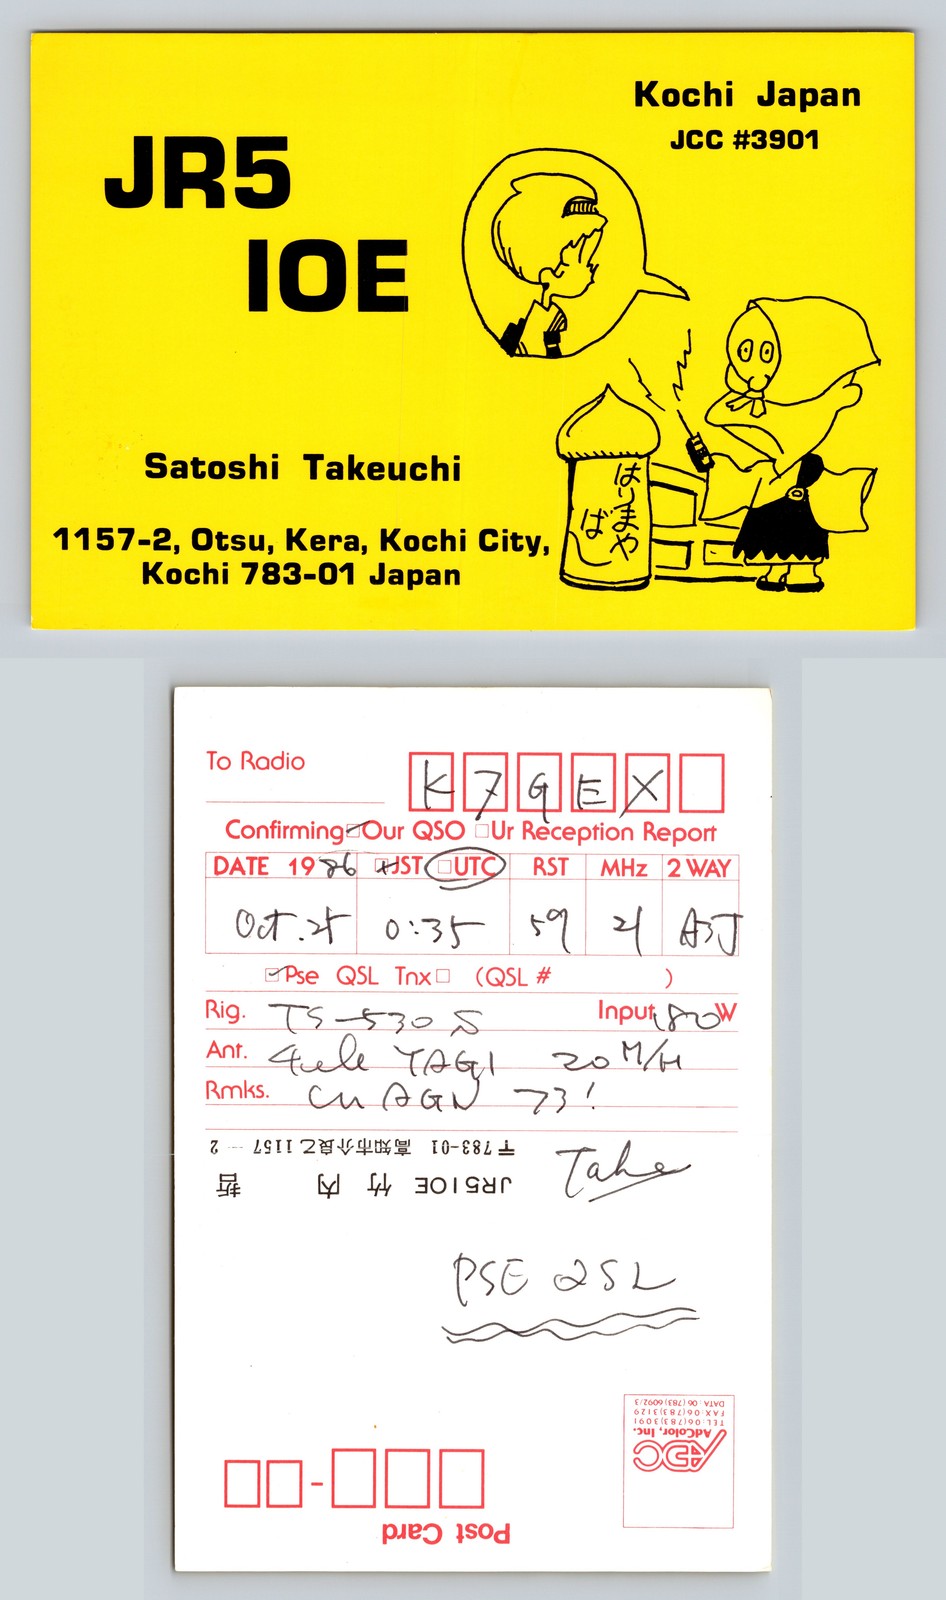 Kochi Japan
JCC #3901
JR5
IOE
はりまや
ばし
Satoshi Takeuchi
1157-2, Otsu, Kera, Kochi City,
Kochi 783-01 Japan
To Radio K7GEX
Confirming ☑Our QSO □Ur Reception Report
DATE 1986 □JST □UTC RST MHz 2 WAY
Oct. 25 0:35 59 21 A3J
☑Pse QSL Tnx□ (QSL # )
Rig. TS-530S Input 180W
Ant. 4ele YAGI 20M/H
Rmks. CU AGN 73!
〒783-01 高知市介良乙1157－2
JR5IOE 竹内 哲
Take
PSE QSL
Post Card
ADC
AdColor, Inc.
TEL:06(783)3091
FAX:06(783)3129
DATA:06(783)6092/3